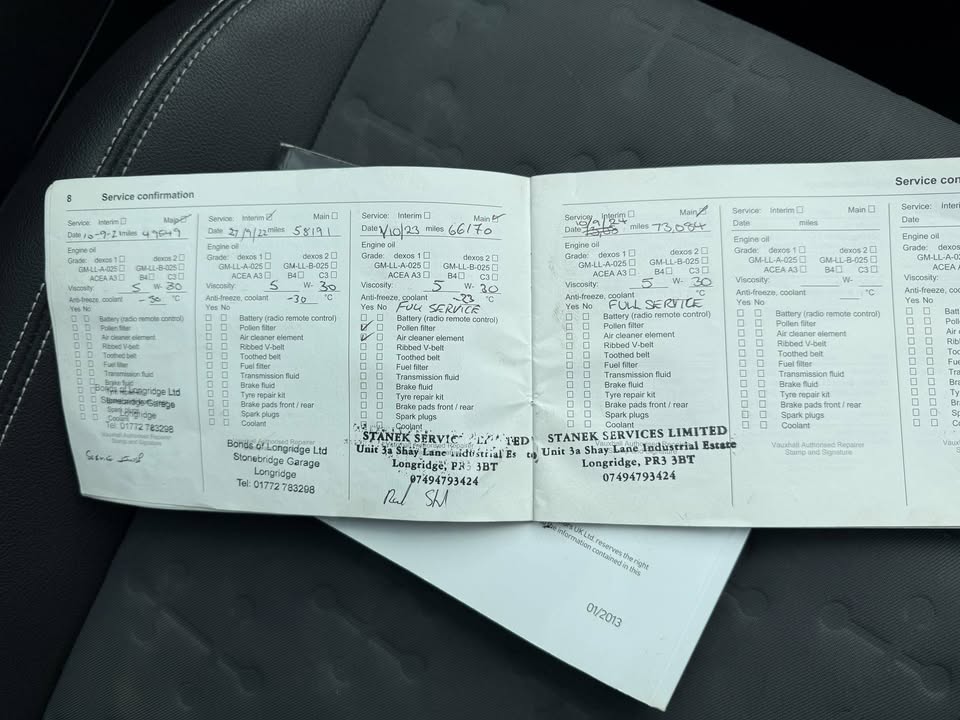 8 Service confirmation
Service: Interim Main
Date 10-9-21 miles 49549
Engine oil
Grade: dexos 1 dexos 2
GM-LL-A-025 GM-LL-B-025
ACEA A3 B4 C3
Viscosity: 5 W- 30
Anti-freeze, coolant -30 °C
Yes No
Battery (radio remote control)
Pollen filter
Air cleaner element
Ribbed V-belt
Toothed belt
Fuel filter
Transmission fluid
Brake fluid
Bonds of Longridge Ltd
Stonebridge Garage
Spark plugs
Longridge
Coolant
Tel: 01772 783298
Vauxhall Authorised Repairer
Stamp and Signature
Service: Interim Main
Date 27/9/22 miles 58191
Engine oil
Grade: dexos 1 dexos 2
GM-LL-A-025 GM-LL-B-025
ACEA A3 B4 C3
Viscosity: 5 W- 30
Anti-freeze, coolant -30 °C
Yes No
Battery (radio remote control)
Pollen filter
Air cleaner element
Ribbed V-belt
Toothed belt
Fuel filter
Transmission fluid
Brake fluid
Tyre repair kit
Brake pads front / rear
Spark plugs
Coolant
Vauxhall Authorised Repairer
Bonds of Longridge Ltd
Stonebridge Garage
Longridge
Tel: 01772 783298
Service: Interim Main
Date 1/10/23 miles 66170
Engine oil
Grade: dexos 1 dexos 2
GM-LL-A-025 GM-LL-B-025
ACEA A3 B4 C3
Viscosity: 5 W- 30
Anti-freeze, coolant -33 °C
Yes No FULL SERVICE
Battery (radio remote control)
Pollen filter
Air cleaner element
Ribbed V-belt
Toothed belt
Fuel filter
Transmission fluid
Brake fluid
Tyre repair kit
Brake pads front / rear
Spark plugs
Coolant
STANEK SERVICES LIMITED
Unit 3a Shay Lane Industrial Estate
Longridge, PR3 3BT
07494793424
Service con
Service: Interim Main
10/9/24
Date miles 73,084
Engine oil
Grade: dexos 1 dexos 2
GM-LL-A-025 GM-LL-B-025
ACEA A3 B4 C3
Viscosity: 5 W- 30
Anti-freeze, coolant °C
Yes No FULL SERVICE
Battery (radio remote control)
Pollen filter
Air cleaner element
Ribbed V-belt
Toothed belt
Fuel filter
Transmission fluid
Brake fluid
Tyre repair kit
Brake pads front / rear
Spark plugs
Coolant
STANEK SERVICES LIMITED
Unit 3a Shay Lane Industrial Estate
Longridge, PR3 3BT
07494793424
Service: Interim Main
Date miles
Engine oil
Grade: dexos 1 dexos 2
GM-LL-A-025 GM-LL-B-025
ACEA A3 B4 C3
Viscosity: W-
Anti-freeze, coolant °C
Yes No
Battery (radio remote control)
Pollen filter
Air cleaner element
Ribbed V-belt
Toothed belt
Fuel filter
Transmission fluid
Brake fluid
Tyre repair kit
Brake pads front / rear
Spark plugs
Coolant
Vauxhall Authorised Repairer
Stamp and Signature
Service: Inter
Date
Engine oil
Grade: dexos
GM-LL-A-025
ACEA A3
Viscosity:
Anti-freeze, coolant
Yes No
UK Ltd. reserves the right
information contained in this
01/2013